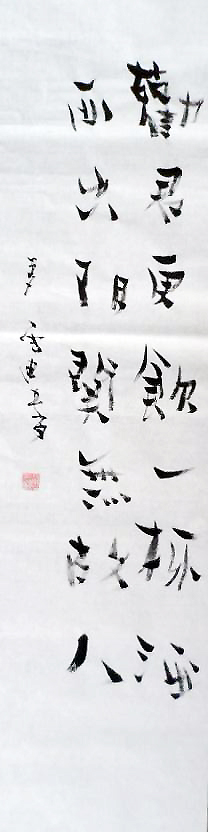 勸君更飲一杯酒
西出陽關無故人